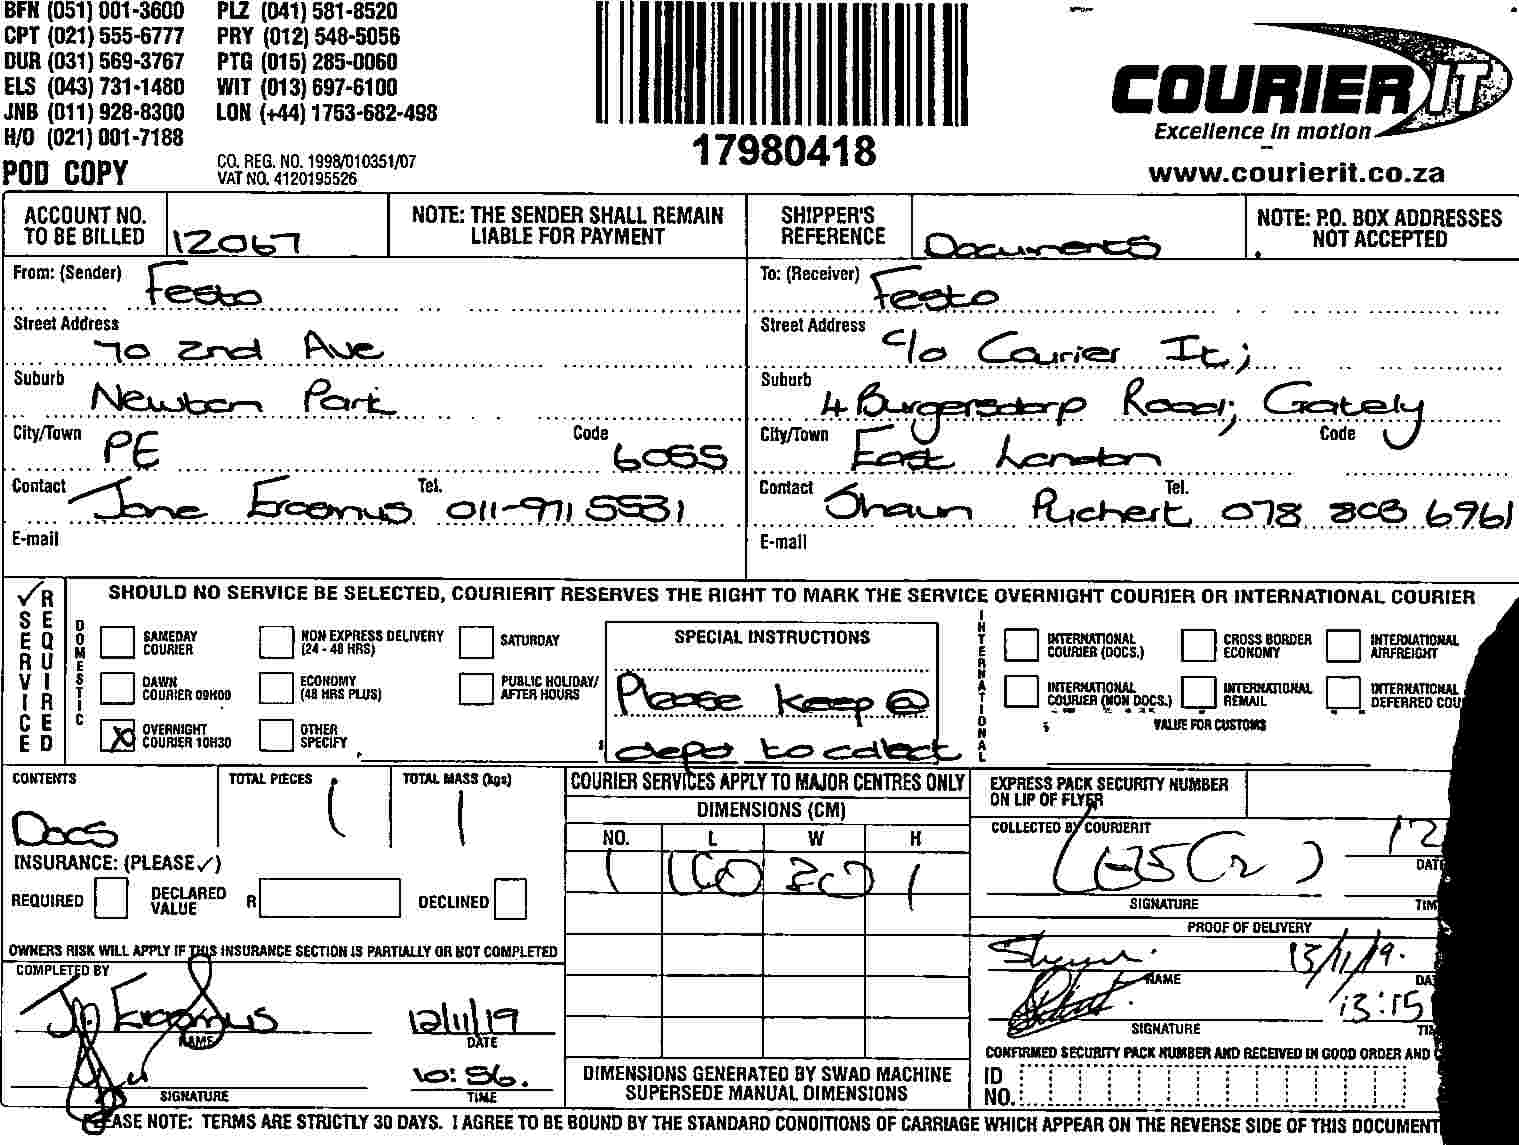 BFN (051) 001-3600 PLZ (041) 581-8520
CPT (021) 555-6777 PRY (012) 548-5056
DUR (031) 569-3767 PTG (015) 285-0060
ELS (043) 731-1480 WIT (013) 697-6100
JNB (011) 928-8300 LON (+44) 1753-682-498
H/O (021) 001-7188
POD COPY
CO. REG. NO. 1998/010351/07
VAT NO. 4120195526
17980418
COURIER IT
Excellence in motion
www.courierit.co.za
ACCOUNT NO. TO BE BILLED 12067
NOTE: THE SENDER SHALL REMAIN LIABLE FOR PAYMENT
SHIPPER'S REFERENCE Documents
NOTE: P.O. BOX ADDRESSES NOT ACCEPTED
From: (Sender) Festo
Street Address 70 2nd Ave
Suburb Newton Park
City/Town PE Code 6055
Contact Jane Erasmus Tel. 011-971 5531
E-mail
To: (Receiver) Festo
Street Address c/o Courier It;
Suburb 4 Burgersdorp Road; Gately
City/Town East London Code
Contact Shaun Richert Tel. 078 803 6961
E-mail
✓ SERVICE REQUIRED
SHOULD NO SERVICE BE SELECTED, COURIERIT RESERVES THE RIGHT TO MARK THE SERVICE OVERNIGHT COURIER OR INTERNATIONAL COURIER
DOMESTIC
SAMEDAY COURIER
NON EXPRESS DELIVERY (24 - 48 HRS)
SATURDAY
DAWN COURIER 09H00
ECONOMY (48 HRS PLUS)
PUBLIC HOLIDAY/ AFTER HOURS
X OVERNIGHT COURIER 10H30
OTHER SPECIFY
SPECIAL INSTRUCTIONS
Please keep @
depo to collect
INTERNATIONAL
INTERNATIONAL COURIER (DOCS.)
CROSS BORDER ECONOMY
INTERNATIONAL AIRFREIGHT
INTERNATIONAL COURIER (NON DOCS.)
INTERNATIONAL REMAIL
INTERNATIONAL DEFERRED COU
VALUE FOR CUSTOMS
CONTENTS Docs
TOTAL PIECES 1
TOTAL MASS (kgs) 1
INSURANCE: (PLEASE ✓)
REQUIRED DECLARED VALUE R DECLINED
OWNERS RISK WILL APPLY IF THIS INSURANCE SECTION IS PARTIALLY OR NOT COMPLETED
COMPLETED BY
J. Erasmus 12/11/19
NAME DATE
10:56.
SIGNATURE TIME
COURIER SERVICES APPLY TO MAJOR CENTRES ONLY
DIMENSIONS (CM)
NO. L W H
1
DIMENSIONS GENERATED BY SWAD MACHINE SUPERSEDE MANUAL DIMENSIONS
EXPRESS PACK SECURITY NUMBER ON LIP OF FLYER
COLLECTED BY COURIERIT
12
DATE
SIGNATURE TIM
PROOF OF DELIVERY
Shaun 13/11/19.
NAME DA
13:15
SIGNATURE TI
CONFIRMED SECURITY PACK NUMBER AND RECEIVED IN GOOD ORDER AND
ID NO.
PLEASE NOTE: TERMS ARE STRICTLY 30 DAYS. I AGREE TO BE BOUND BY THE STANDARD CONDITIONS OF CARRIAGE WHICH APPEAR ON THE REVERSE SIDE OF THIS DOCUMENT